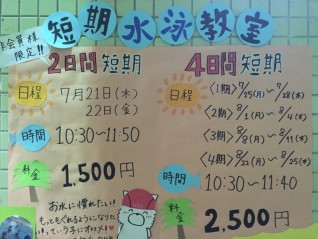 非会員様
限定!!
短期水泳教室
2日間短期
日程
7月21日(木)
22日(金)
時間
10:30〜11:50
料金
1,500円
お水に慣れたい!
もっともぐれるようになりた
い!っていう子にオススメ!
4日間短期
日程
〈1期〉7/25(月)〜7/28(木)
〈2期〉8/1(月)〜8/4(木)
〈3期〉8/8(月)〜8/11(木)
〈4期〉8/22(月)〜8/25(木)
時間
10:30〜11:40
料金
2,500円